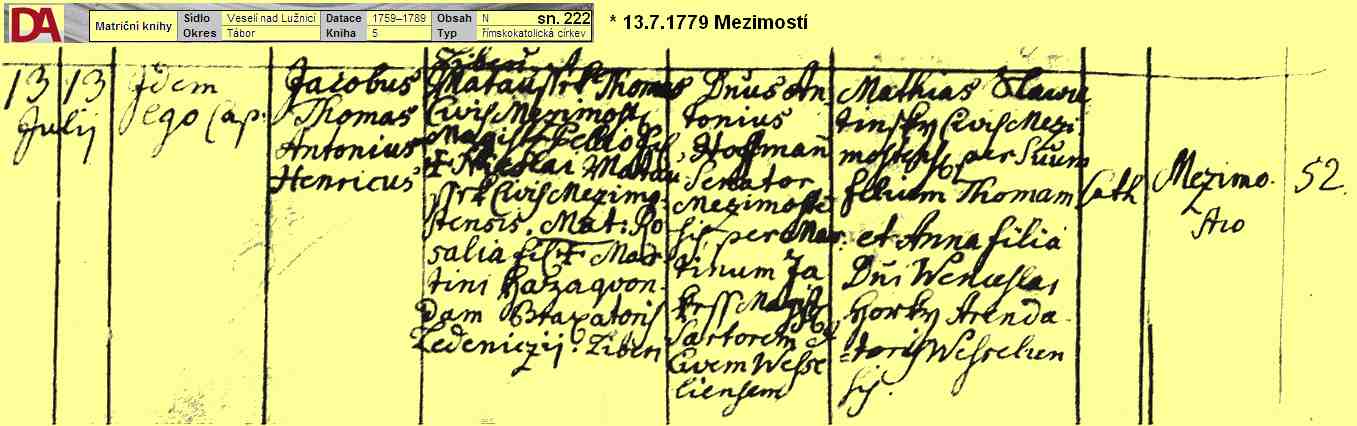 DA
Matriční knihy
Sídlo Veselí nad Lužnicí Datace 1759–1789 Obsah N sn. 222
Okres Tábor Kniha 5 Typ římskokatolická církev
* 13.7.1779 Mezimostí
13 13
Julij
Idem
Ego Cap:
Jacobus
Thomas
Antonius
Henricus
Thomas
Civis Mezimosti
Mezimo
stensis. Mat: Ro
salia fil: Mar
tini quon
dam Braxatoris
Ledeniczij. Liberi
Dnus An
tonius
Hoffman
Senator
Mezimosten
sis, per Mar
tinum Ja
Sartorem
Civem Wesse
liensem
Mathias Slawa
tinsky Civis Mezi
mostensis per Suum
filium Thomam
et Anna filia
Dni Wenceslai
Horky Arenda
toris Wesselien
sis.
Cath
Mezimo
stio
52.